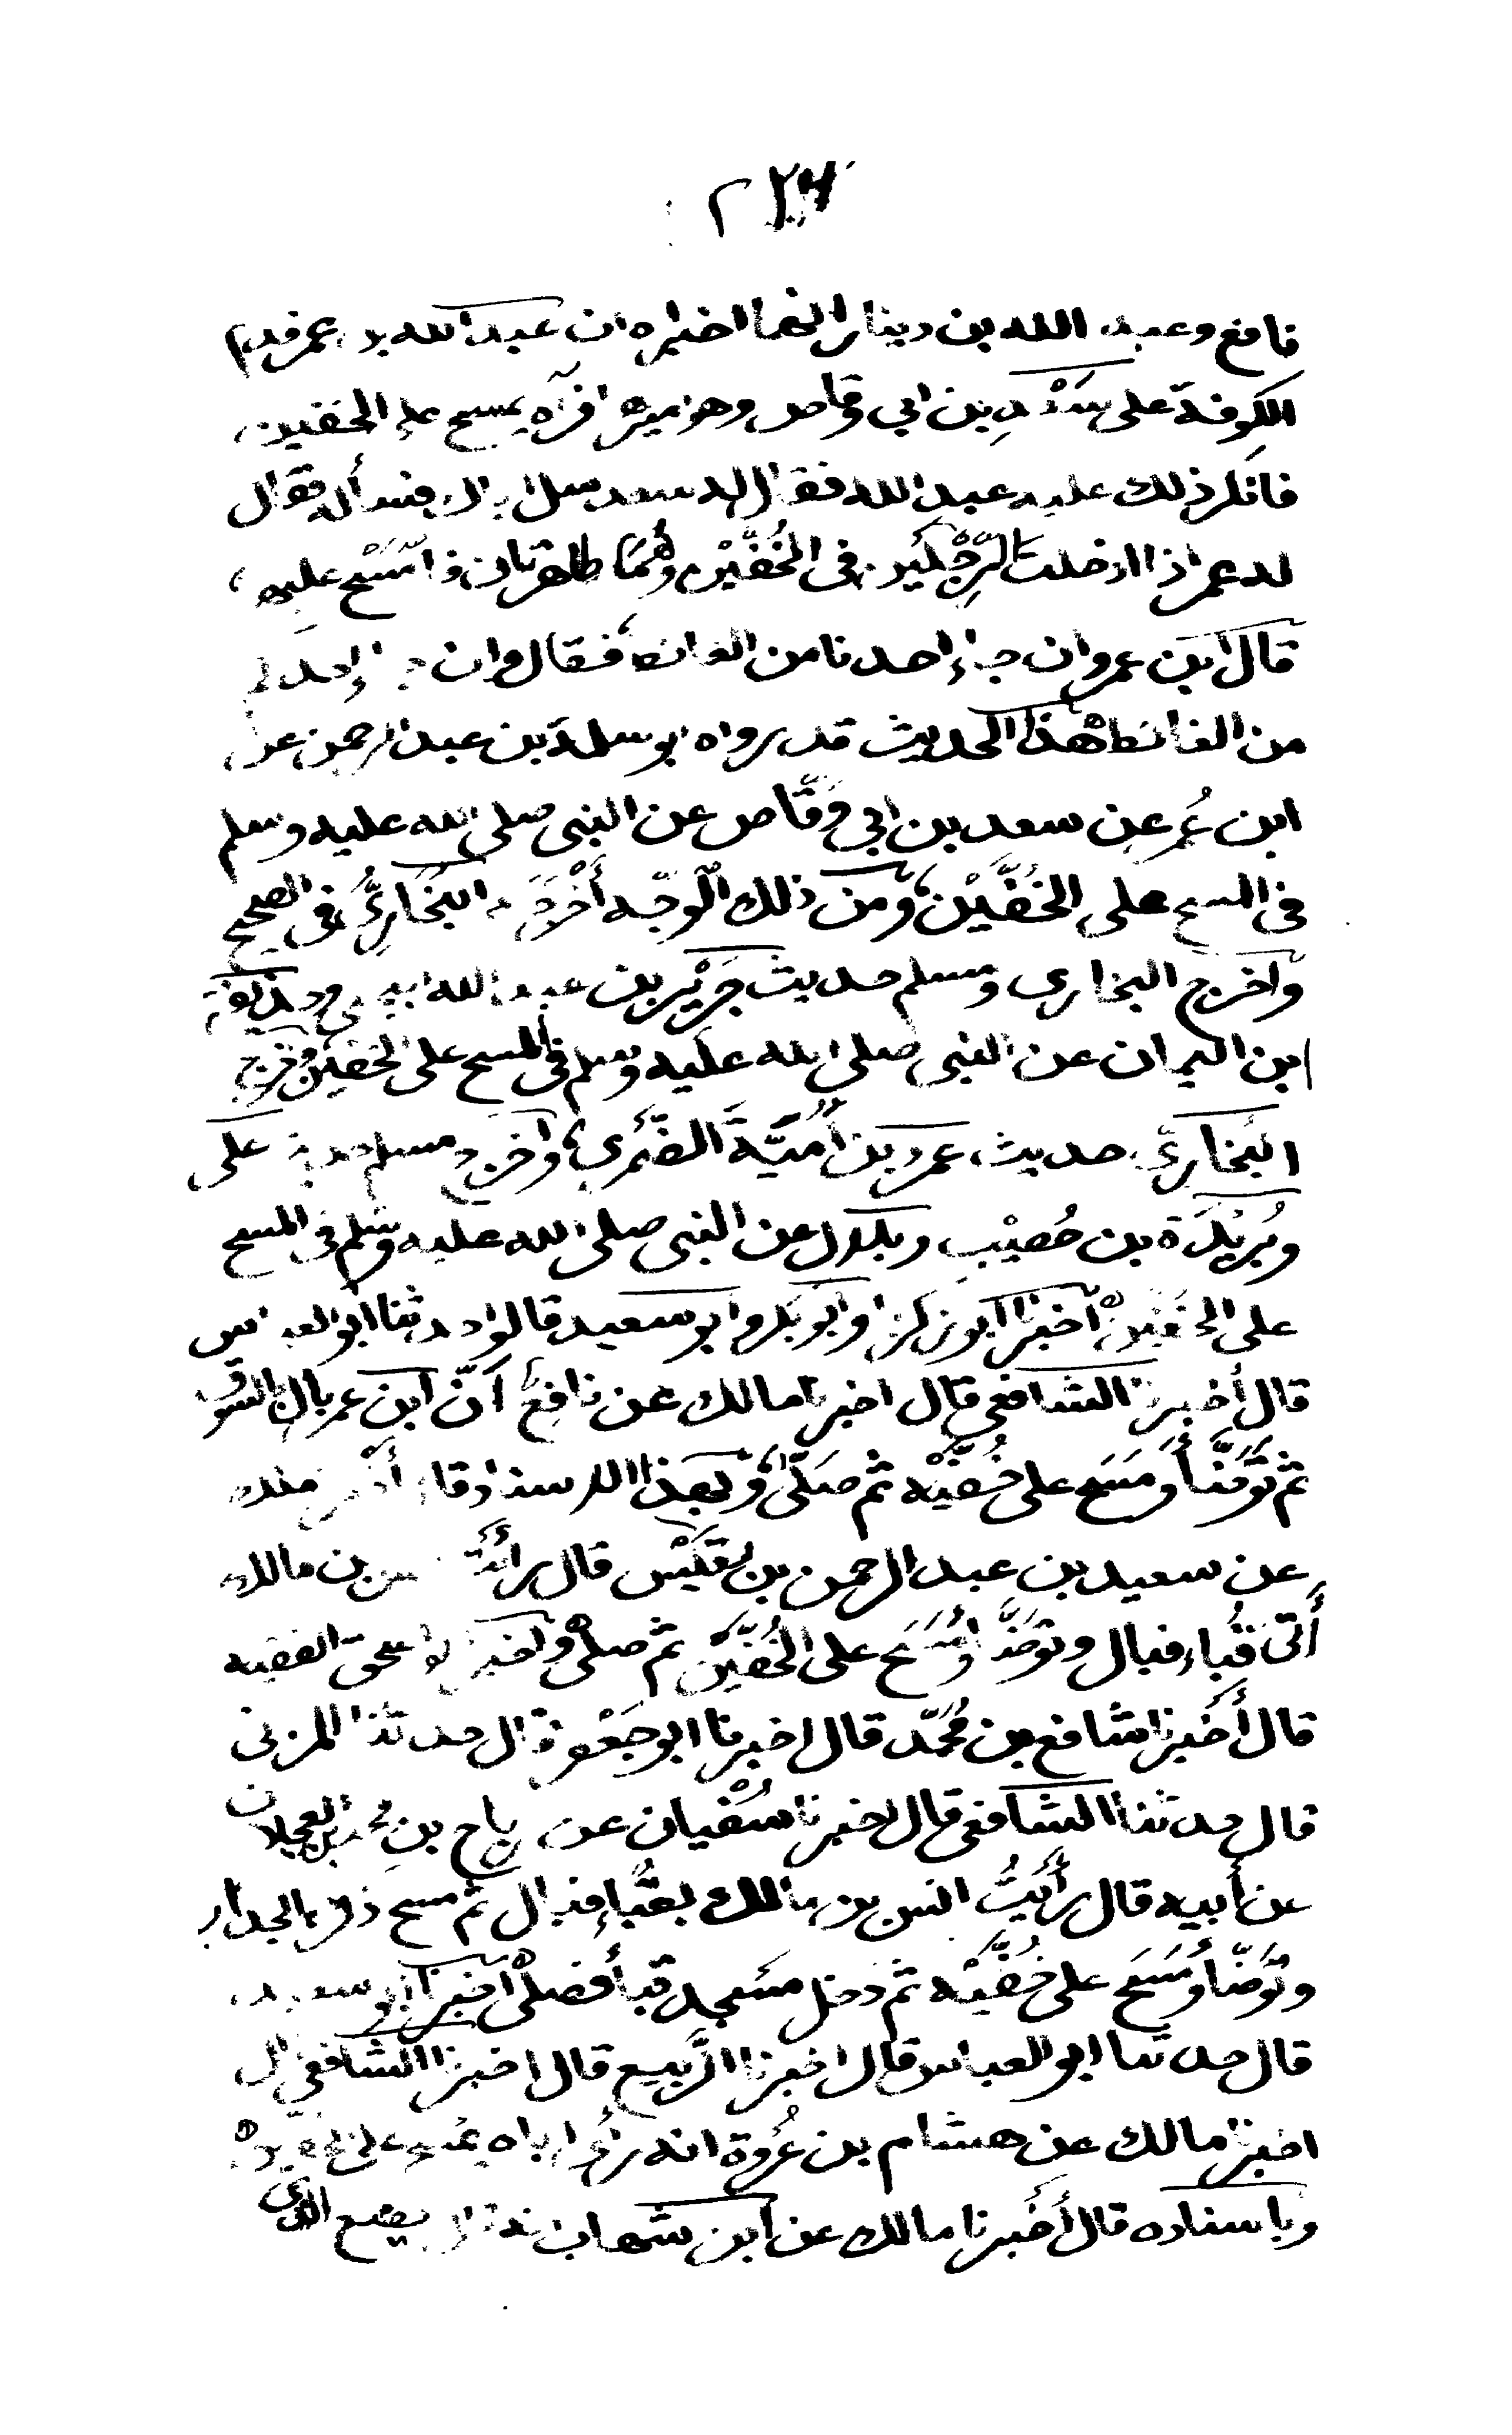 نافع وعبد الله بن دينار انهما اخبراه ان عبد الله بن عمر قدم
الكوفة على سَعْدِ بن ابي وقاص وهو اميرها فرآه يمسح على الخفين
فانكر ذلك عليه عبد الله فقال له سعد سل اباك فسأله فقال
له عمر اذا ادخلت الرِّجْلَين في الخُفَّيْن وهُمَا طاهرتان فامْسَح عليهما
قال ابن عمر وان جاء احدنا من الغائط فقال وان جاء احدكم
من الغائط هذا الحديث قد رواه ابو سلمة بن عبد الرحمن عن
ابن عُمر عن سعد بن ابي وقّاص عن النبي صلى الله عليه وسلم
في المسح على الخُفَّيْن ومن ذلك الوجه أَخْرَجَه البُخَارِيُّ في الصحيح
واخرج البخاري ومسلم حديث جَرِيْر بن عبد الله البجلي وحذيفة
ابن اليمان عن النبي صلى الله عليه وسلم في المسح على الخفين واخرج
البُخَاريّ حديث عمرو بن أُمَيَّةَ الضَّمْري واخرج مسلم حديث على
وبُرَيْدَة بن حُصَيْب وبلال عن النبي صلى الله عليه وسلم في المسح
على الخفين اخبرنا ابو زكريا وابو بكر وابو سعيد قالوا حدثنا ابو العباس
قال أخبرنا الشافعي قال اخبرنا مالك عن نافع أنّ ابن عمر بال بالسوق
ثم تَوَضَّأَ ومَسَحَ على خُفَّيْه ثم صَلَّى وبهذا الاسناد قال أخبرنا مالك
عن سعيد بن عبد الرحمن بن رُقَيْش قال رَأَيْتُ انس بن مالك
أَتَى قُبَاء فبال وتوضَّأ ومَسَحَ على الخُفَّيْن ثم صلى واخبرنا ابو اسحق الفقيه
قال أَخْبرنا شافع بن مُحَمَّد قال اخبرنا ابو جَعْفر قال حدثنا المزني
قال حدثنا الشافعي قال اخبرنا سُفْيان عن رباح بن محمد بن العجلان
عن أبيه قال رَأَيْتُ انس بن مالك بقُبَاءٍ فبال ثم مسح ذكره بالجدار
وتَوَضَّأَ ومَسَحَ على خُفَّيْه ثم دخل مسجد قبا فصلى اخبرنا ابو سعيد
قال حدثنا ابو العباس قال اخبرنا الرَّبيع قال اخبرنا الشافعي قال
اخبرنا مالك عن هشام بن عُرْوَة انه رأى اباه يمسح على الخفين
وباسناده قال أَخْبرنا مالك عن ابن شهاب قال يضع الذي